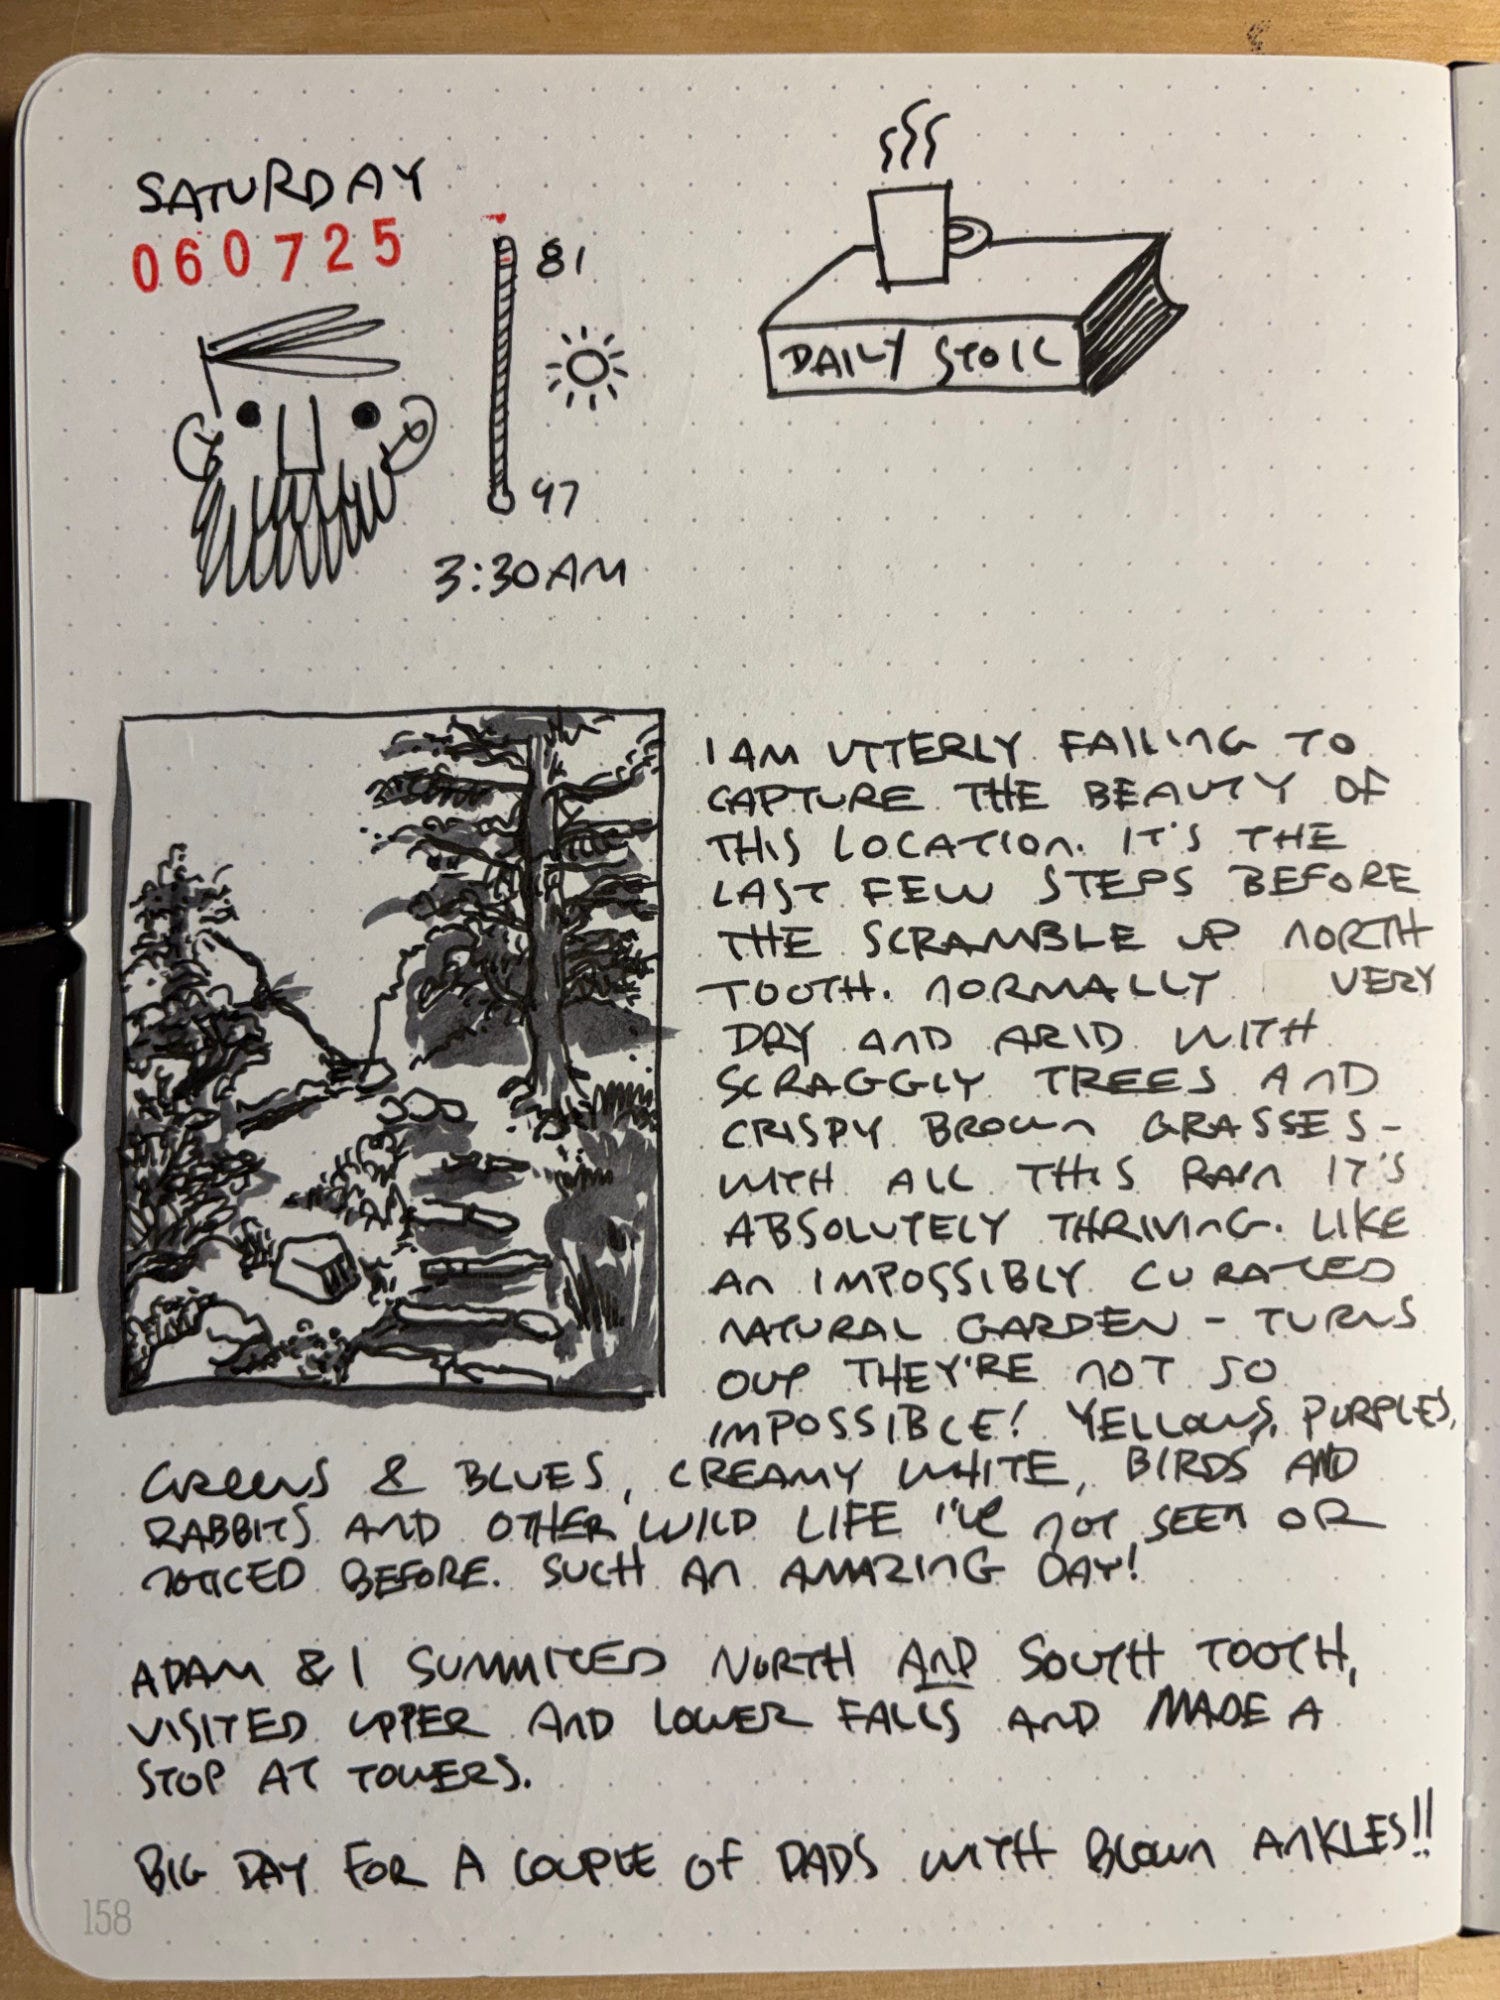 SATURDAY
060725
81
47
3:30AM
DAILY STOIC
I AM UTTERLY FAILING TO
CAPTURE THE BEAUTY OF
THIS LOCATION. IT'S THE
LAST FEW STEPS BEFORE
THE SCRAMBLE UP NORTH
TOOTH. NORMALLY VERY
DRY AND ARID WITH
SCRAGGLY TREES AND
CRISPY BROWN GRASSES-
WITH ALL THIS RAIN IT'S
ABSOLUTELY THRIVING. LIKE
AN IMPOSSIBLY CURATED
NATURAL GARDEN - TURNS
OUT THEY'RE NOT SO
IMPOSSIBLE! YELLOWS, PURPLES,
GREENS & BLUES, CREAMY WHITE, BIRDS AND
RABBITS AND OTHER WILD LIFE I'VE NOT SEEN OR
NOTICED BEFORE. SUCH AN AMAZING DAY!
ADAM & I SUMMITED NORTH AND SOUTH TOOTH,
VISITED UPPER AND LOWER FALLS AND MADE A
STOP AT TOWERS.
BIG DAY FOR A COUPLE OF DADS WITH BLOWN ANKLES!!
158